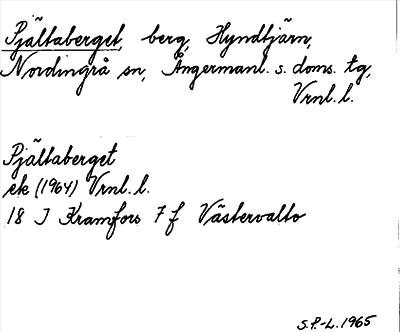 Pjältaberget, berg, Hyndtjärn,
Nordingrå sn, Ångermanl. s. doms. tg,
Vrnl. l.
Pjältaberget
ek (1964) Vrnl. l.
18 J Kramfors 7 f Västervalto
S.P.-L. 1965